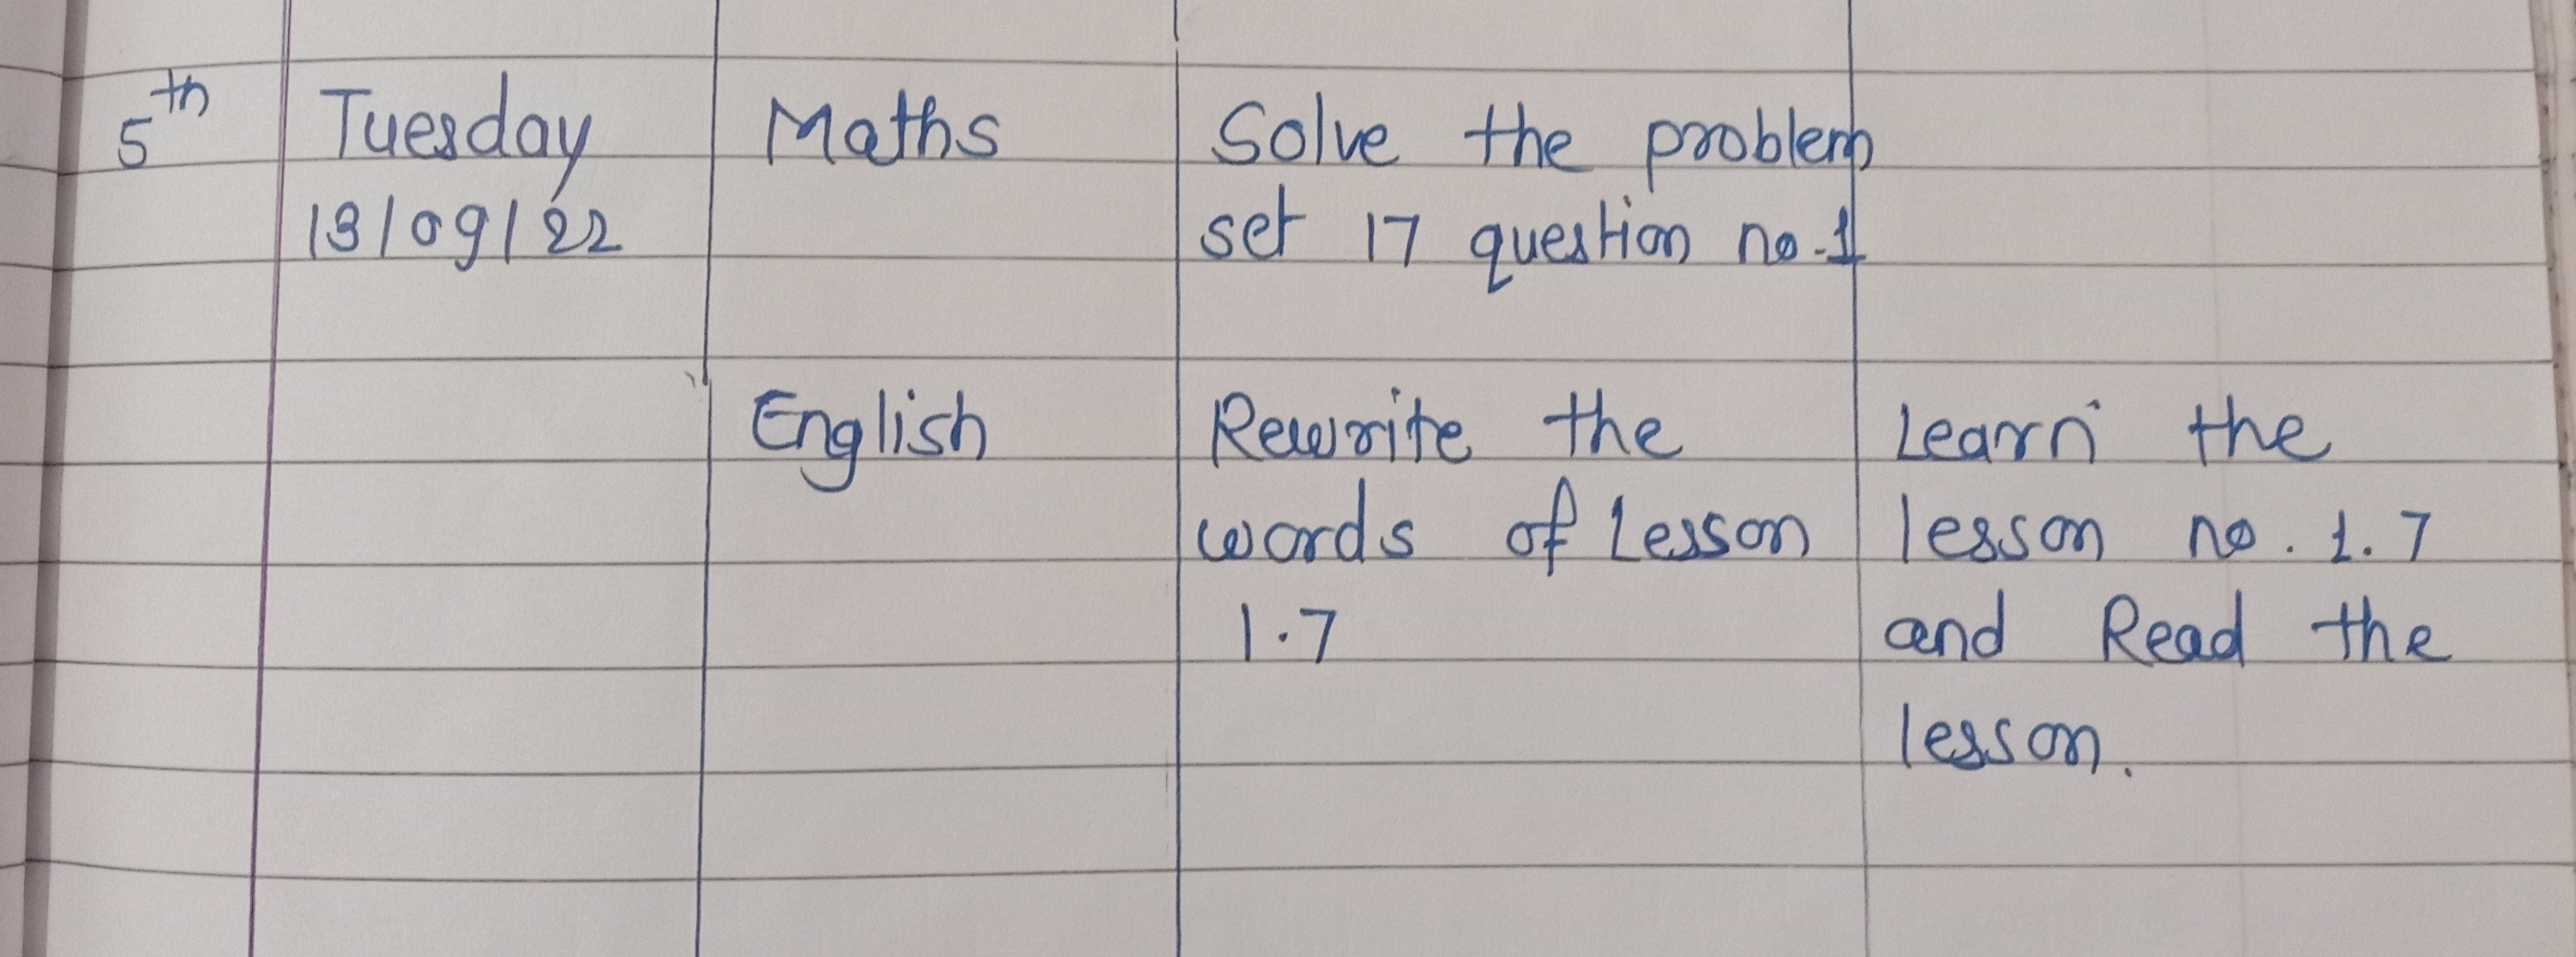 5th Tuesday Maths Solve the problem
13/09/22 set 17 question no.1
English Rewrite the Learn the
words of Lesson lesson no. 1.7
1.7 and Read the
lesson.